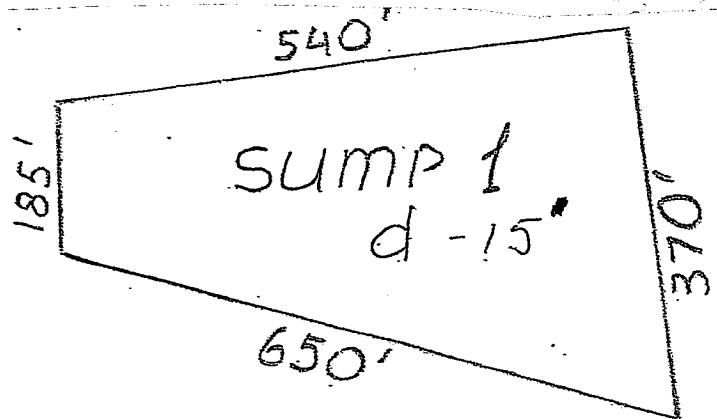 540'
185'
SUMP 1
d - 15'
370'
650'